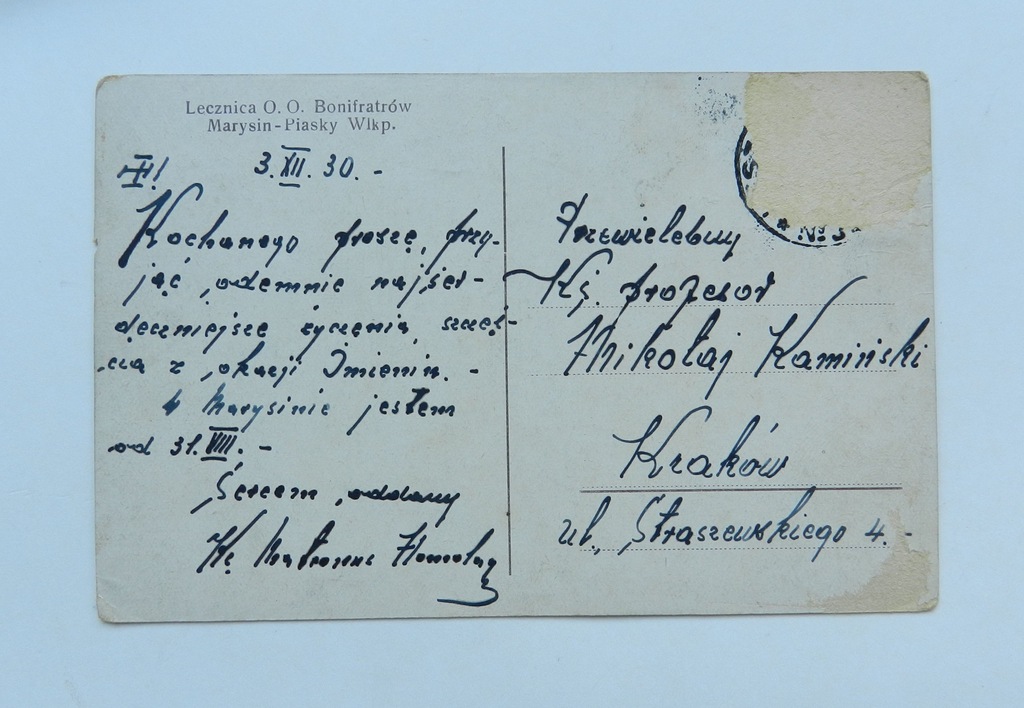 Lecznica O. O. Bonifratrów
Marysin-Piasky Wlkp.
3. XII. 30. -
Kochanego proszę, przy-
jąć odemnie najser-
deczniejsze życzenia, szczęś-
cia z okazji Imienin. -
W Marysinie jestem
od 31. VIII. -
Sercem oddany
Ks.
Przewielebny
Ks. profesor
Mikołaj Kamiński
Kraków
ul. Straszewskiego 4. -